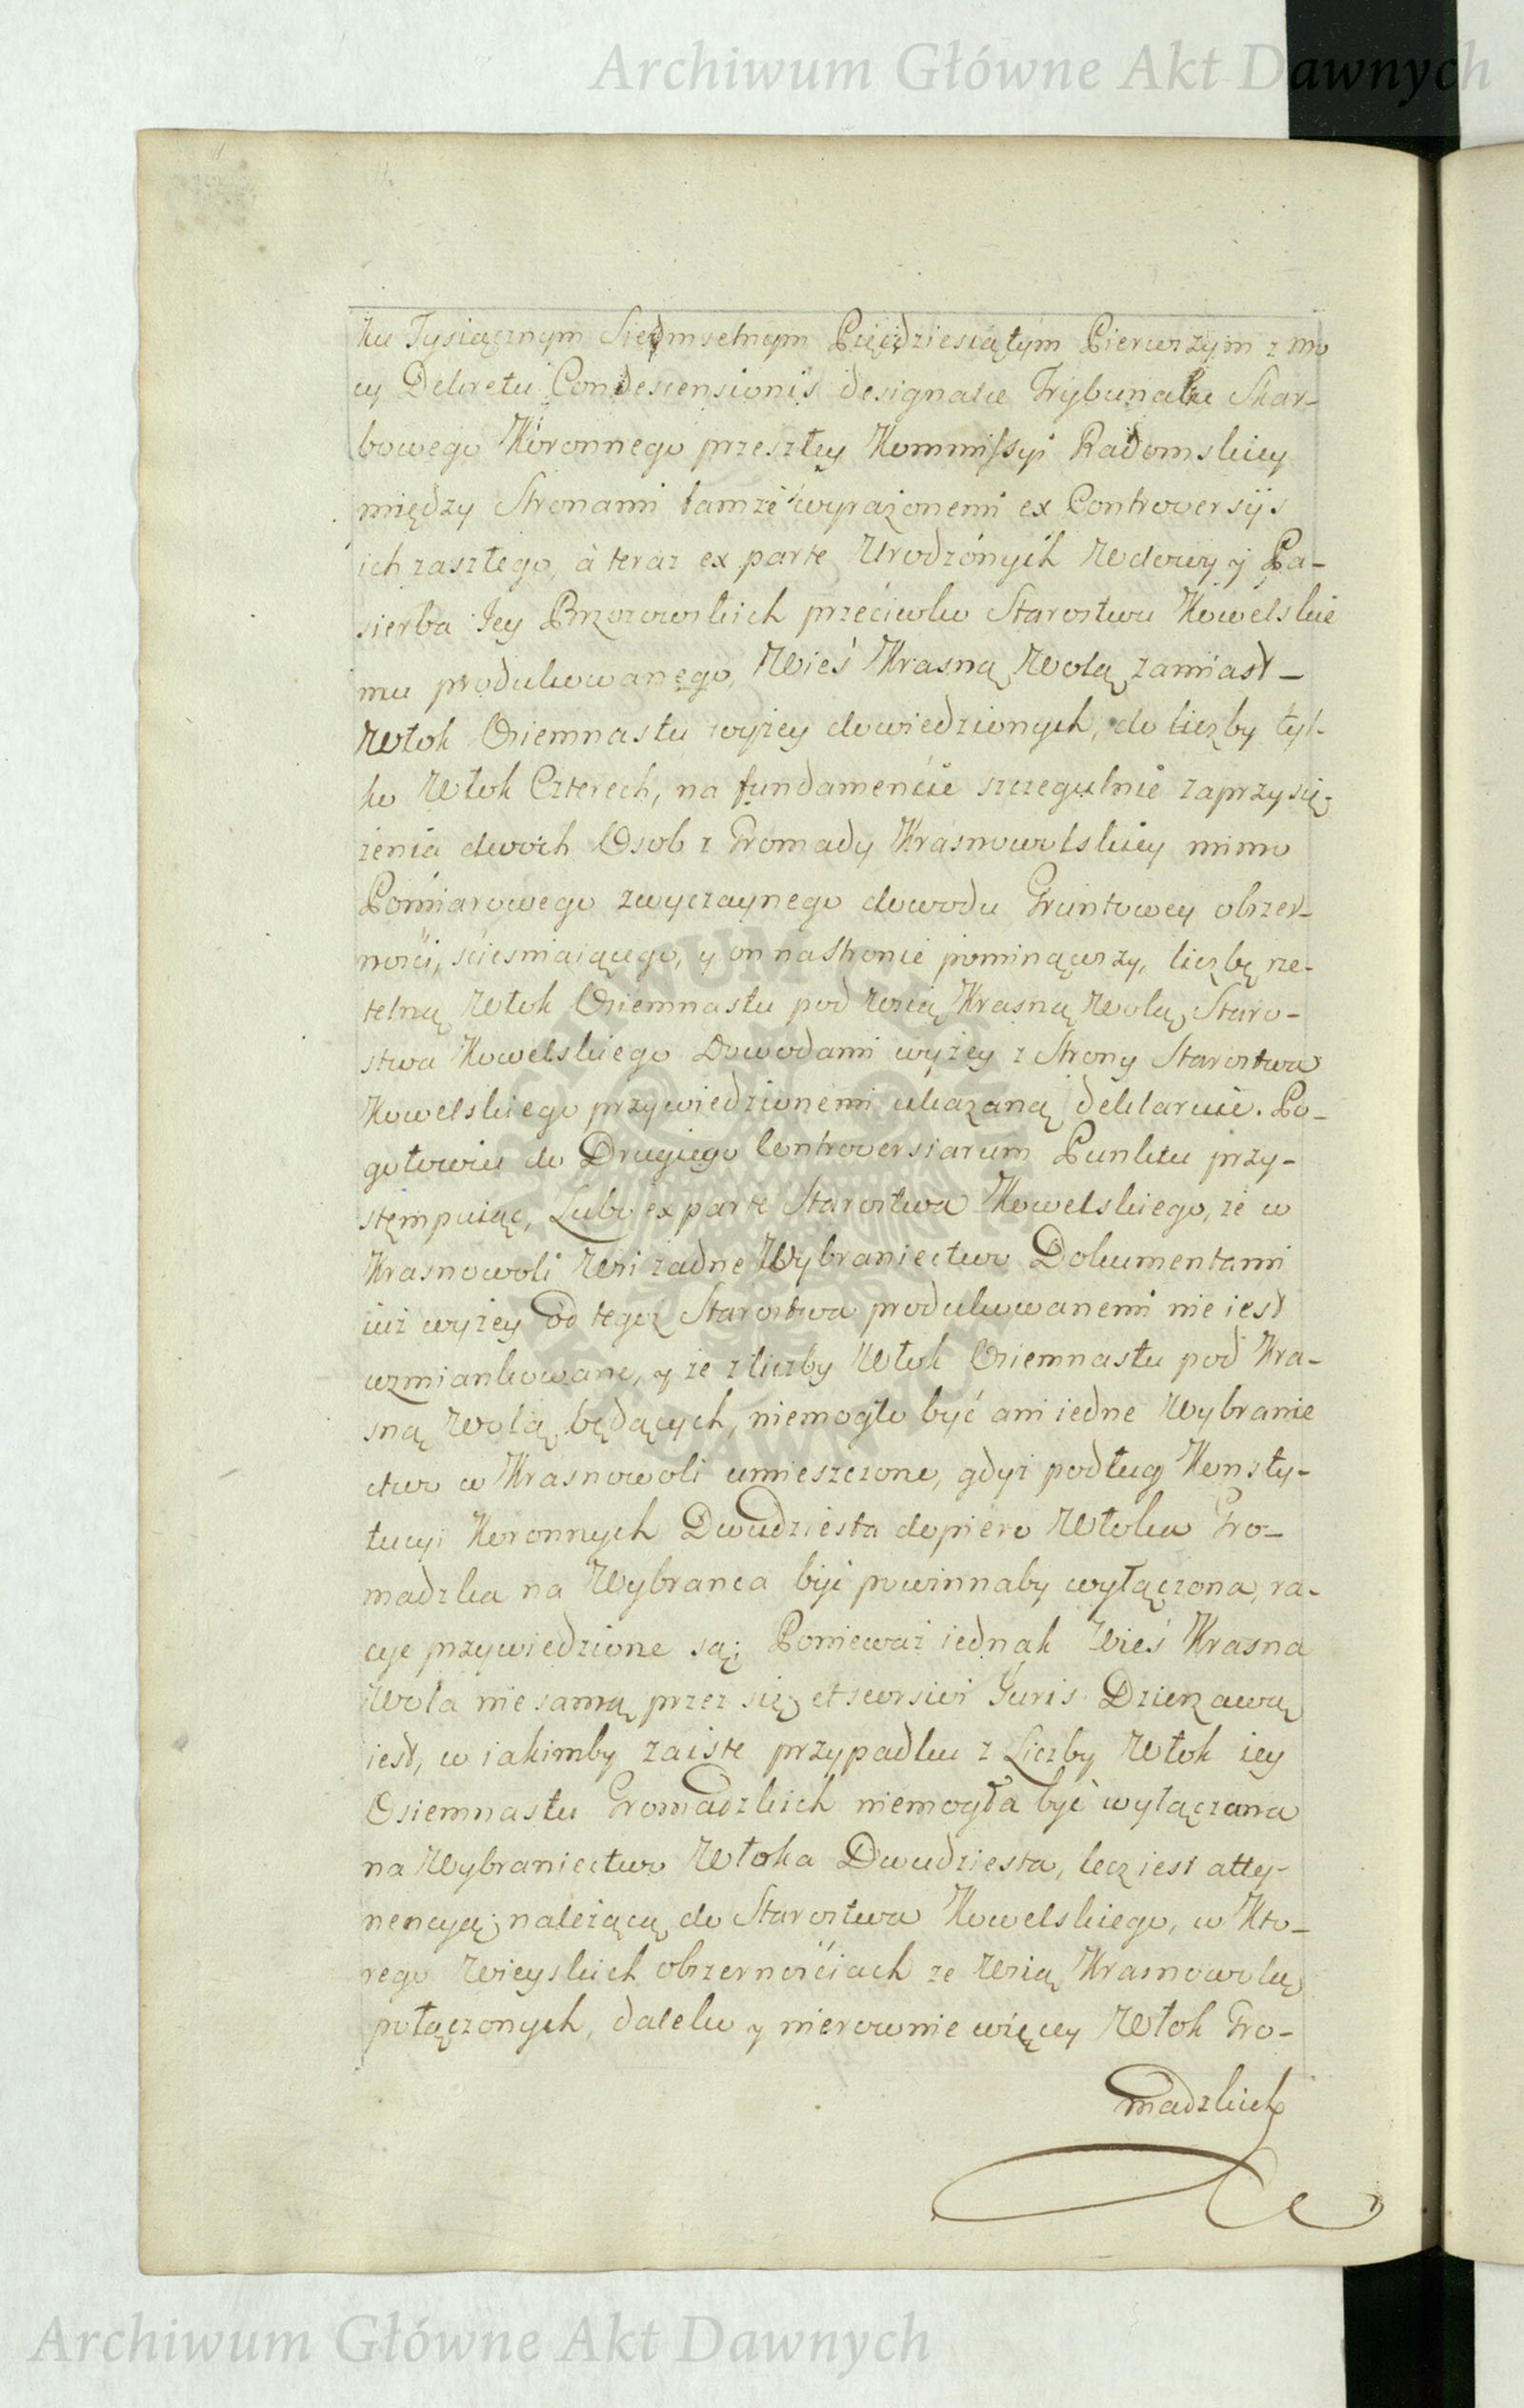 Archiwum Główne Akt Dawnych
ku Tysiącznym Siedmsetnym Pięćdziesiątym Pierwszym z mo
cy Dekretu Condescensionis designatae Trybunału Skar-
bowego Koronnego przeszłey Kommissyi Radomskiey
między Stronami tamże wyrażonemi ex Controversijs
ich zaszłego, à teraz ex parte Urodzonych Wdowy y Pa-
sierba Jey Brzozowskich przeciwko Starostwu Kowelskie
mu produkowanego, Wieś Krasną Wolą zamiast -
Włok Osiemnastu wyżey dowiedzionych, do liczby tyl-
ko Włok Czterech, na fundamencie szczegulnie zaprzysię-
żenia dwóch Osob z Gromady Krasnowolskiey mimo
Pomiarowego zwyczaynego dowodu Gruntowey obszer-
ności, ściesniaiącego, y on nastronie pominąwszy, liczbę rze-
telną Włok Osiemnastu pod Wsią Krasną Wolą Staro-
stwa Kowelskiego Dowodami wyżey z Strony Starostwa
Kowelskiego przywiedzionemi ukazaną deklaruie. Po-
gotowiu do Drugiego Controversiarum Punktu przy-
stępuiąc, Lubo ex parte Starostwa Kowelskiego, że w
Krasnowoli Wsi żadne Wybraniectwo Dokumentami
iuż wyżey od tegoż Starostwa produkowanemi nie iest
wzmiankowane, y że z liczby Włok Osiemnastu pod Kra-
sną Wolą będących, niemogło być ani iedne Wybranie
ctwo w Krasnowoli umieszczone, gdyż podług Konsty-
tucyi Koronnych Dwudziesta dopiero Włoka Gro-
madzka na Wybranca być powinnaby wyłączona, ra-
cye przywiedzione są; Ponieważ iednak Wieś Krasna
Wola nie samą przez się et seorsivi Juris Dzierzawą
iest, w iakimby zaiste przypadku z Liczby Włok iey
Osiemnastu Gromadzkich niemogła być wyłączana
na Wybraniectwo Włoka Dwudziesta, lecz iest atty-
nencyą należącą do Starostwa Kowelskiego, w Kto-
rego Wieyskich obszernościach ze Wsią Krasnowolą
połączonych, daleko y nierownie więcey Włok Gro-
madzkich
Archiwum Główne Akt Dawnych